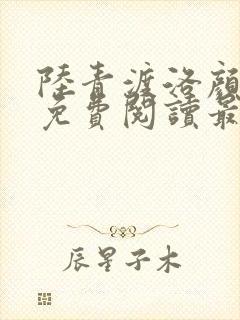 陸青漄洛顏
免費閱讀最
辰星子木